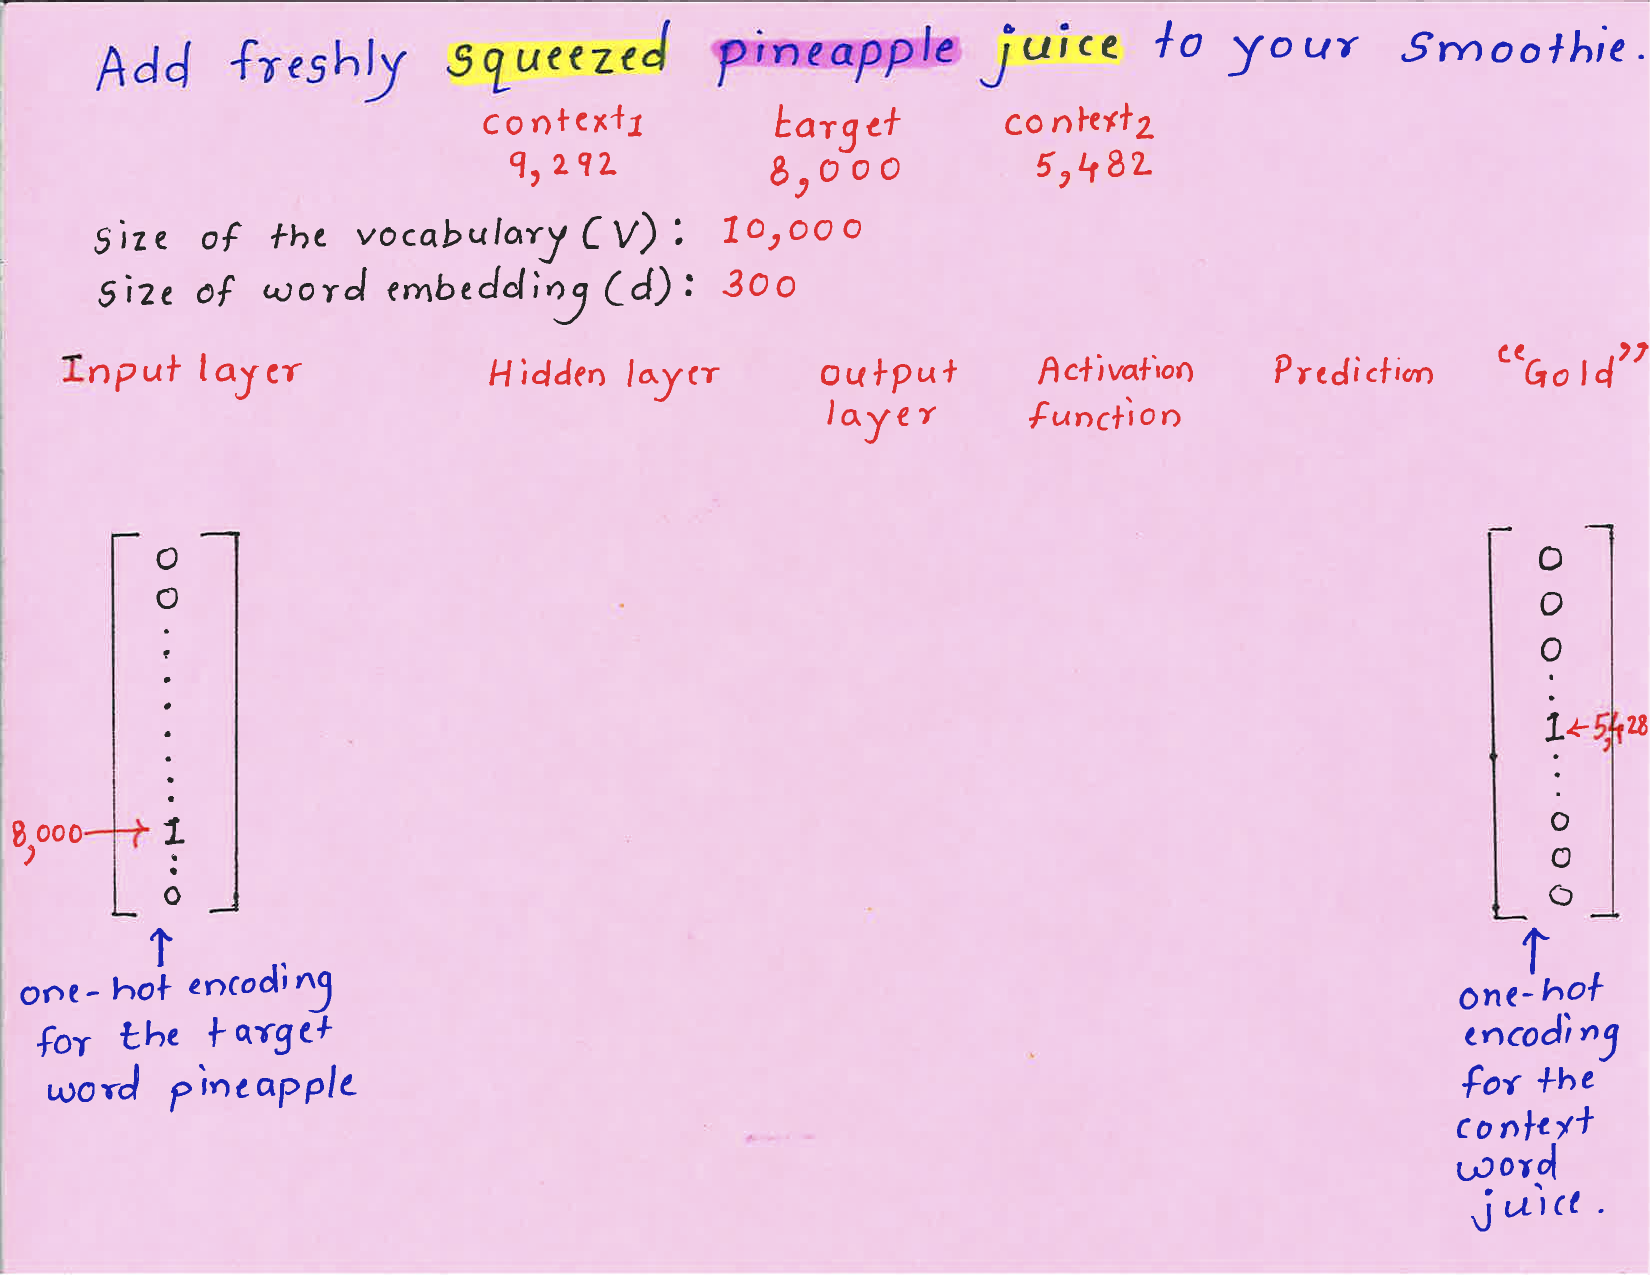 Add freshly squeezed pineapple juice to your smoothie.
context1 target context2
9,292 8,000 5,482
size of the vocabulary (V): 10,000
size of word embedding (d): 300
Input layer Hidden layer output layer Activation function Prediction “Gold”
0
0
8,000 → 1
0
↑
one-hot encoding
for the target
word pineapple
0
0
0
1 ← 5,428
0
0
0
↑
one-hot
encoding
for the
context
word
juice.